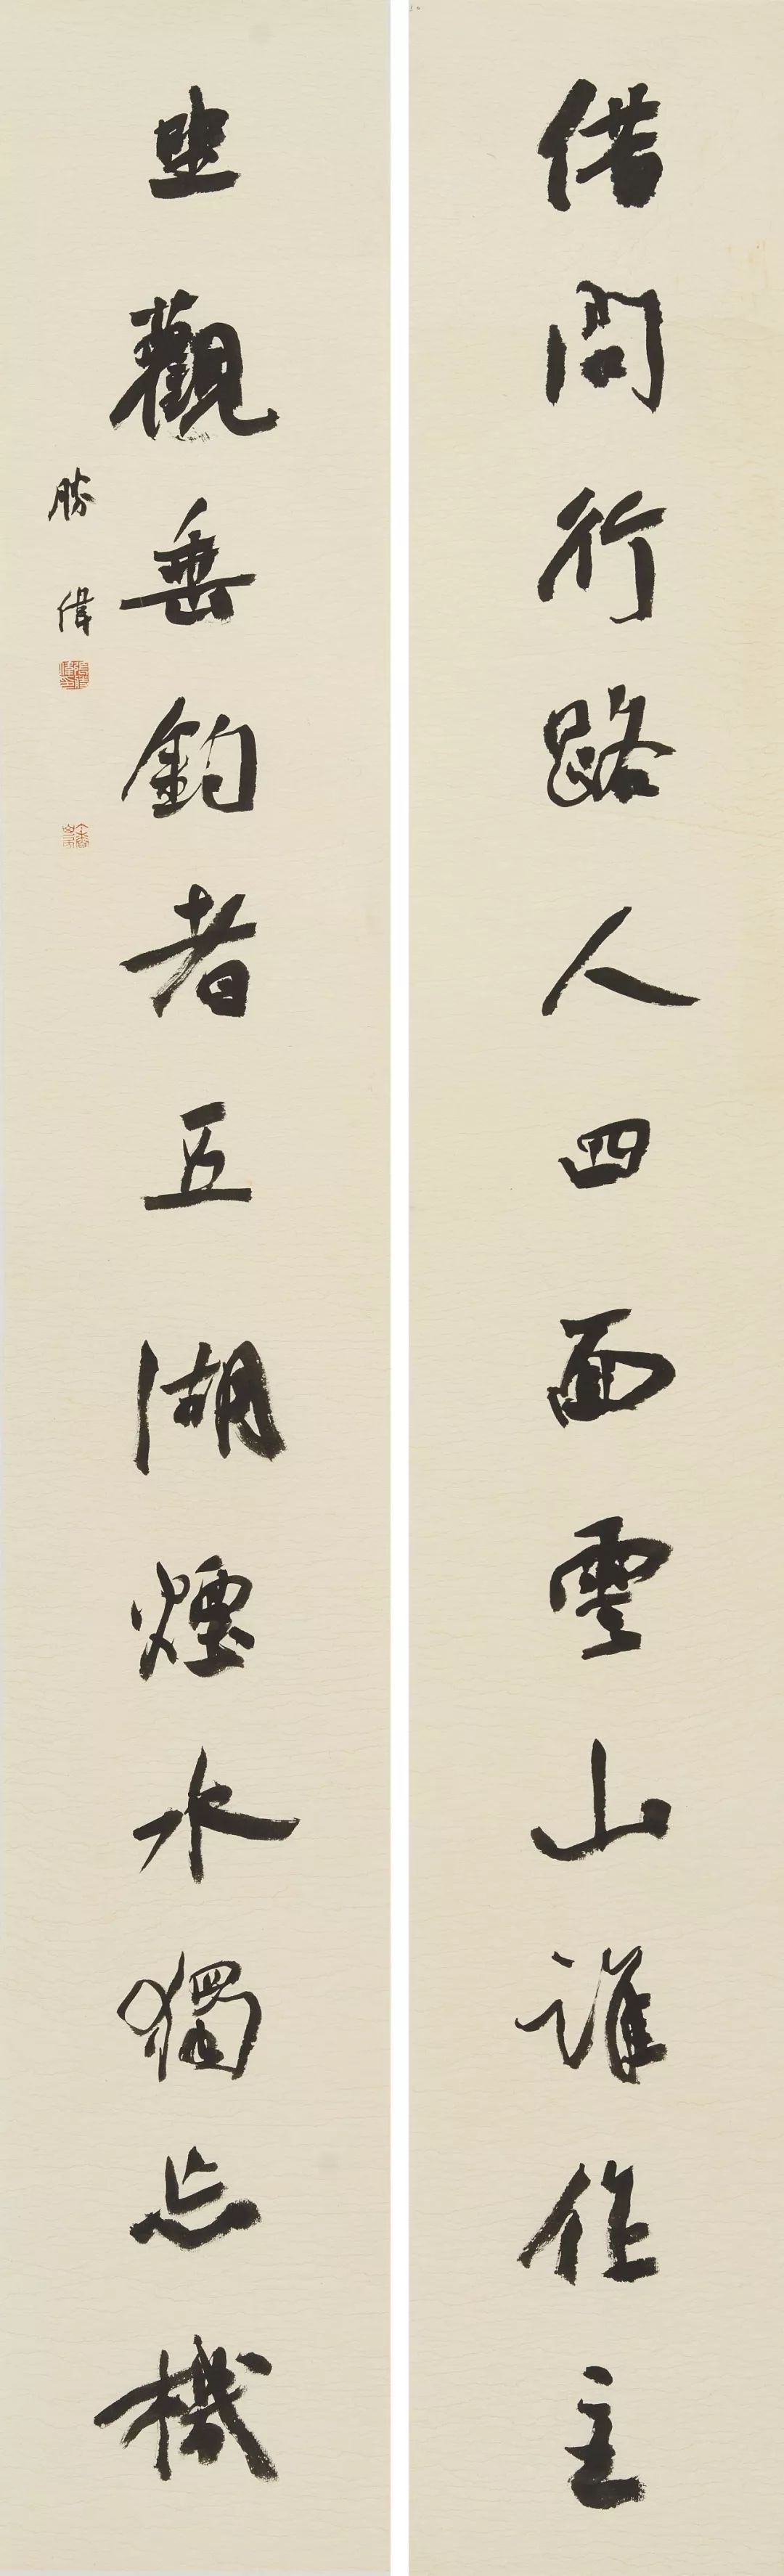 借問行路人四面雲山誰作主
坐觀垂釣者五湖煙水獨忘機
勝偉